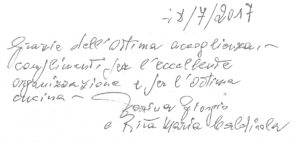 18/7/2017
Grazie dell'ottima accoglienza,
complimenti per l'eccellente
organizzazione e per l'ottima
cucina
e Rita Maria